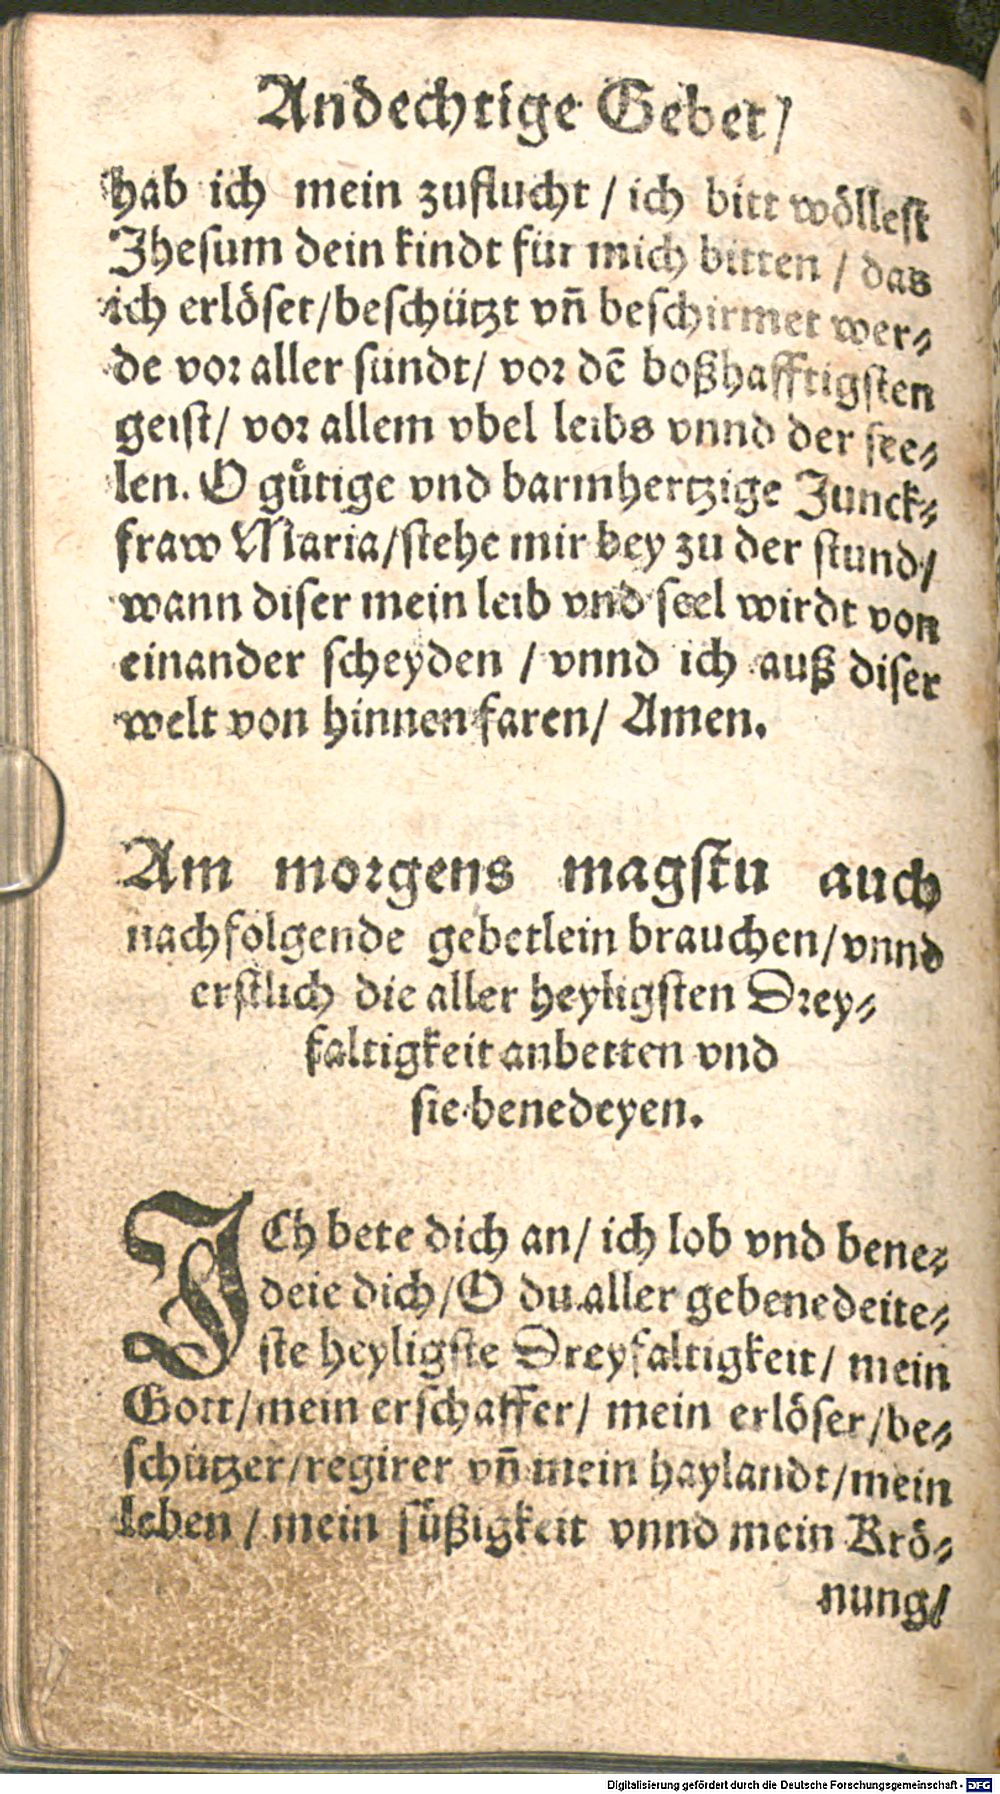 Andechtige Gebet/
hab ich mein zuflucht / ich bitt wöllest
Jhesum dein kindt für mich bitten / das
ich erlöset/beschützt vñ beschirmet wer⸗
de vor aller sündt/ vor dē boßhafftigsten
geist/ vor allem vbel leibs vnnd der see⸗
len. O gütige vnd barmhertzige Junck⸗
fraw Maria/stehe mir bey zu der stund/
wann diser mein leib vnd seel wirdt von
einander scheyden / vnnd ich auß diser
welt von hinnen faren/ Amen.
Am morgens magstu auch
nachfolgende gebetlein brauchen/vnnd
erstlich die aller heyligsten Drey⸗
faltigkeit anbetten vnd
sie benedeyen.
ICh bete dich an/ ich lob vnd bene⸗
deie dich/O du aller gebenedeite⸗
ste heyligste Dreyfaltigkeit/ mein
Gott/mein erschaffer/ mein erlöser/be⸗
schützer/regirer vñ mein haylandt/mein
leben / mein süßigkeit vnnd mein Krö⸗
nung/
Digitalisierung gefördert durch die Deutsche Forschungsgemeinschaft - DFG